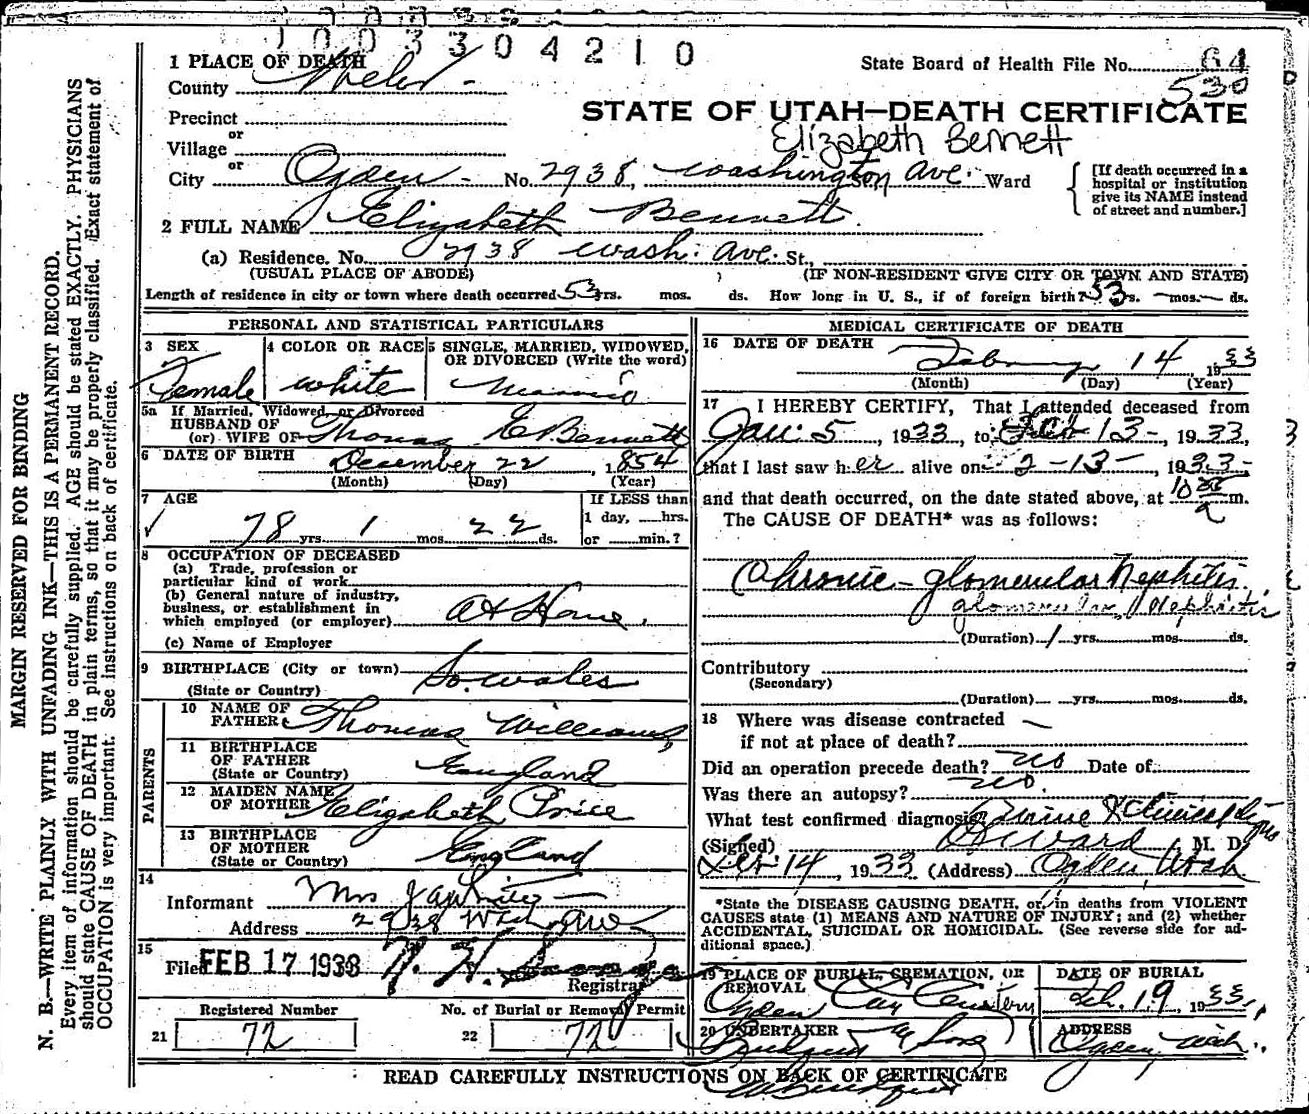 1003304210
1 PLACE OF DEATH
State Board of Health File No. 64
County Weber
530
STATE OF UTAH—DEATH CERTIFICATE
Precinct
or
Elizabeth Bennett
Village
or
City Ogden - No. 2938, Washington Ave. Ward
[If death occurred in a hospital or institution give its NAME instead of street and number.]
2 FULL NAME Elizabeth Bennett
(a) Residence. No. 2938 Wash. Ave. St.,
(USUAL PLACE OF ABODE) (IF NON-RESIDENT GIVE CITY OR TOWN AND STATE)
Length of residence in city or town where death occurred 53 yrs. mos. ds. How long in U. S., if of foreign birth? 53 s. — mos. — ds.
PERSONAL AND STATISTICAL PARTICULARS
3 SEX
Female
4 COLOR OR RACE
white
5 SINGLE, MARRIED, WIDOWED, OR DIVORCED (Write the word)
5a If Married, Widowed, or Divorced
HUSBAND OF
(or) WIFE OF Thomas E Bennett
6 DATE OF BIRTH December 22, 1854
(Month) (Day) (Year)
7 AGE
78 yrs. 1 mos. 22 ds.
If LESS than
1 day, hrs.
or min.?
8 OCCUPATION OF DECEASED
(a) Trade, profession or
particular kind of work
(b) General nature of industry,
business, or establishment in
which employed (or employer) At Home.
(c) Name of Employer
9 BIRTHPLACE (City or town)
(State or Country) So. Wales
PARENTS
10 NAME OF
FATHER Thomas Williams
11 BIRTHPLACE
OF FATHER
(State or Country) England
12 MAIDEN NAME
OF MOTHER Elizabeth Price
13 BIRTHPLACE
OF MOTHER
(State or Country) England
14
Informant Mrs
Address 2938 Wash Ave
15
Filed FEB 17 1933
Registrar
Registered Number
21 72
No. of Burial or Removal Permit
22 72
MEDICAL CERTIFICATE OF DEATH
16 DATE OF DEATH
February 14, 1933
(Month) (Day) (Year)
17 I HEREBY CERTIFY, That I attended deceased from
Jan. 5, 1933, to Feb 13-, 1933,
that I last saw her alive on 2-13-, 1933-
and that death occurred, on the date stated above, at 10 m.
a
The CAUSE OF DEATH* was as follows:
Chronic - glomerular Nephitis
glomerular Nephitis
(Duration) 1 yrs. mos. ds.
Contributory
(Secondary)
(Duration) yrs. mos. ds.
18 Where was disease contracted —
if not at place of death?
Did an operation precede death? no Date of
Was there an autopsy? no.
What test confirmed diagnosis? Urine & Clinical
(Signed) Ward, M. D.
Feb. 14, 1933 (Address) Ogden, Utah
*State the DISEASE CAUSING DEATH, or, in deaths from VIOLENT
CAUSES state (1) MEANS AND NATURE OF INJURY; and (2) whether
ACCIDENTAL, SUICIDAL OR HOMICIDAL. (See reverse side for ad-
ditional space.)
19 PLACE OF BURIAL, CREMATION, OR
REMOVAL
Ogden City Cemetery
DATE OF BURIAL
Feb. 19, 1933,
20 UNDERTAKER
& Sons
ADDRESS
Ogden, Utah.
READ CAREFULLY INSTRUCTIONS ON BACK OF CERTIFICATE
MARGIN RESERVED FOR BINDING
N. B.—WRITE PLAINLY WITH UNFADING INK—THIS IS A PERMANENT RECORD.
Every item of information should be carefully supplied. AGE should be stated EXACTLY. PHYSICIANS
should state CAUSE OF DEATH in plain terms, so that it may be properly classified. Exact statement of
OCCUPATION is very important. See instructions on back of certificate.